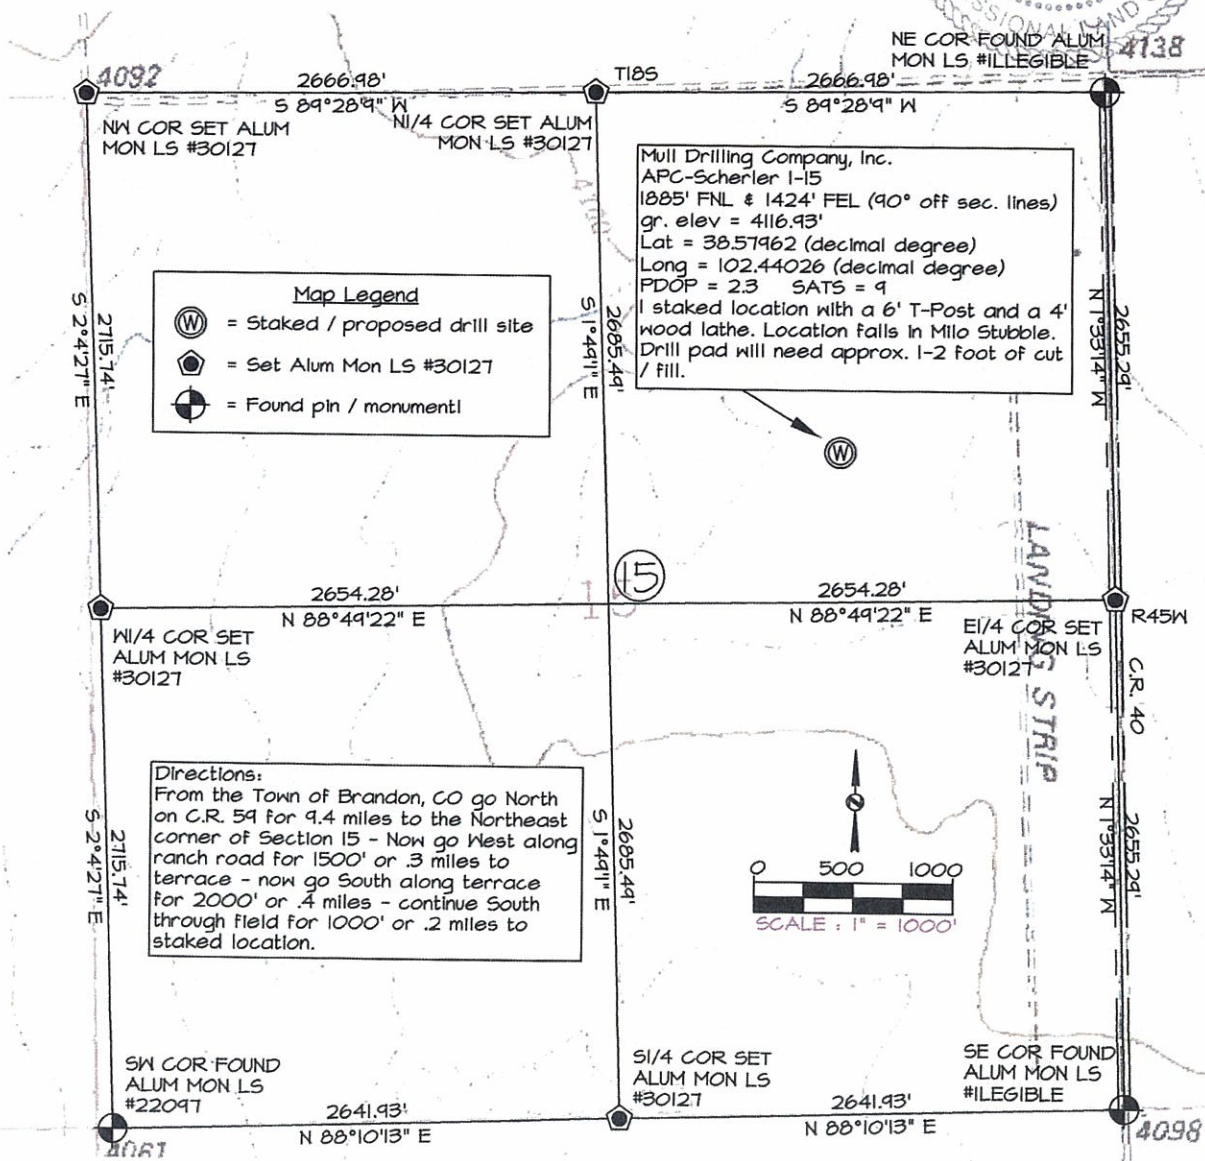 SSIONAL LAND
NE COR FOUND ALUM
MON LS #ILLEGIBLE
4138
4092
2666.98'
S 89°28'9" W
T18S
2666.98'
S 89°28'9" W
NW COR SET ALUM
MON LS #30127
N1/4 COR SET ALUM
MON LS #30127
4100
Mull Drilling Company, Inc.
APC-Scherler 1-15
1885' FNL & 1424' FEL (90° off sec. lines)
gr. elev = 4116.93'
Lat = 38.57962 (decimal degree)
Long = 102.44026 (decimal degree)
PDOP = 2.3 SATS = 9
I staked location with a 6' T-Post and a 4'
wood lathe. Location falls in Milo Stubble.
Drill pad will need approx. 1-2 foot of cut
/ fill.
Map Legend
W = Staked / proposed drill site
= Set Alum Mon LS #30127
= Found pin / monumentl
S 2°4'27" E
2715.74'
S 1°49'1" E
2685.49'
N 1°33'14" W
2655.29'
W
15
15
2654.28'
N 88°49'22" E
2654.28'
N 88°49'22" E
W1/4 COR SET
ALUM MON LS
#30127
E1/4 COR SET
ALUM MON LS
#30127
R45W
LANDING STRIP
C.R. 40
Directions:
From the Town of Brandon, CO go North
on C.R. 59 for 9.4 miles to the Northeast
corner of Section 15 - Now go West along
ranch road for 1500' or .3 miles to
terrace - now go South along terrace
for 2000' or .4 miles - continue South
through field for 1000' or .2 miles to
staked location.
S 2°4'27" E
2715.74'
S 1°49'1" E
2685.49'
N
0 500 1000
SCALE : 1" = 1000'
N 1°33'14" W
2655.29'
SW COR FOUND
ALUM MON LS
#22097
S1/4 COR SET
ALUM MON LS
#30127
SE COR FOUND
ALUM MON LS
#ILEGIBLE
2641.93'
N 88°10'13" E
2641.93'
N 88°10'13" E
4061
4098